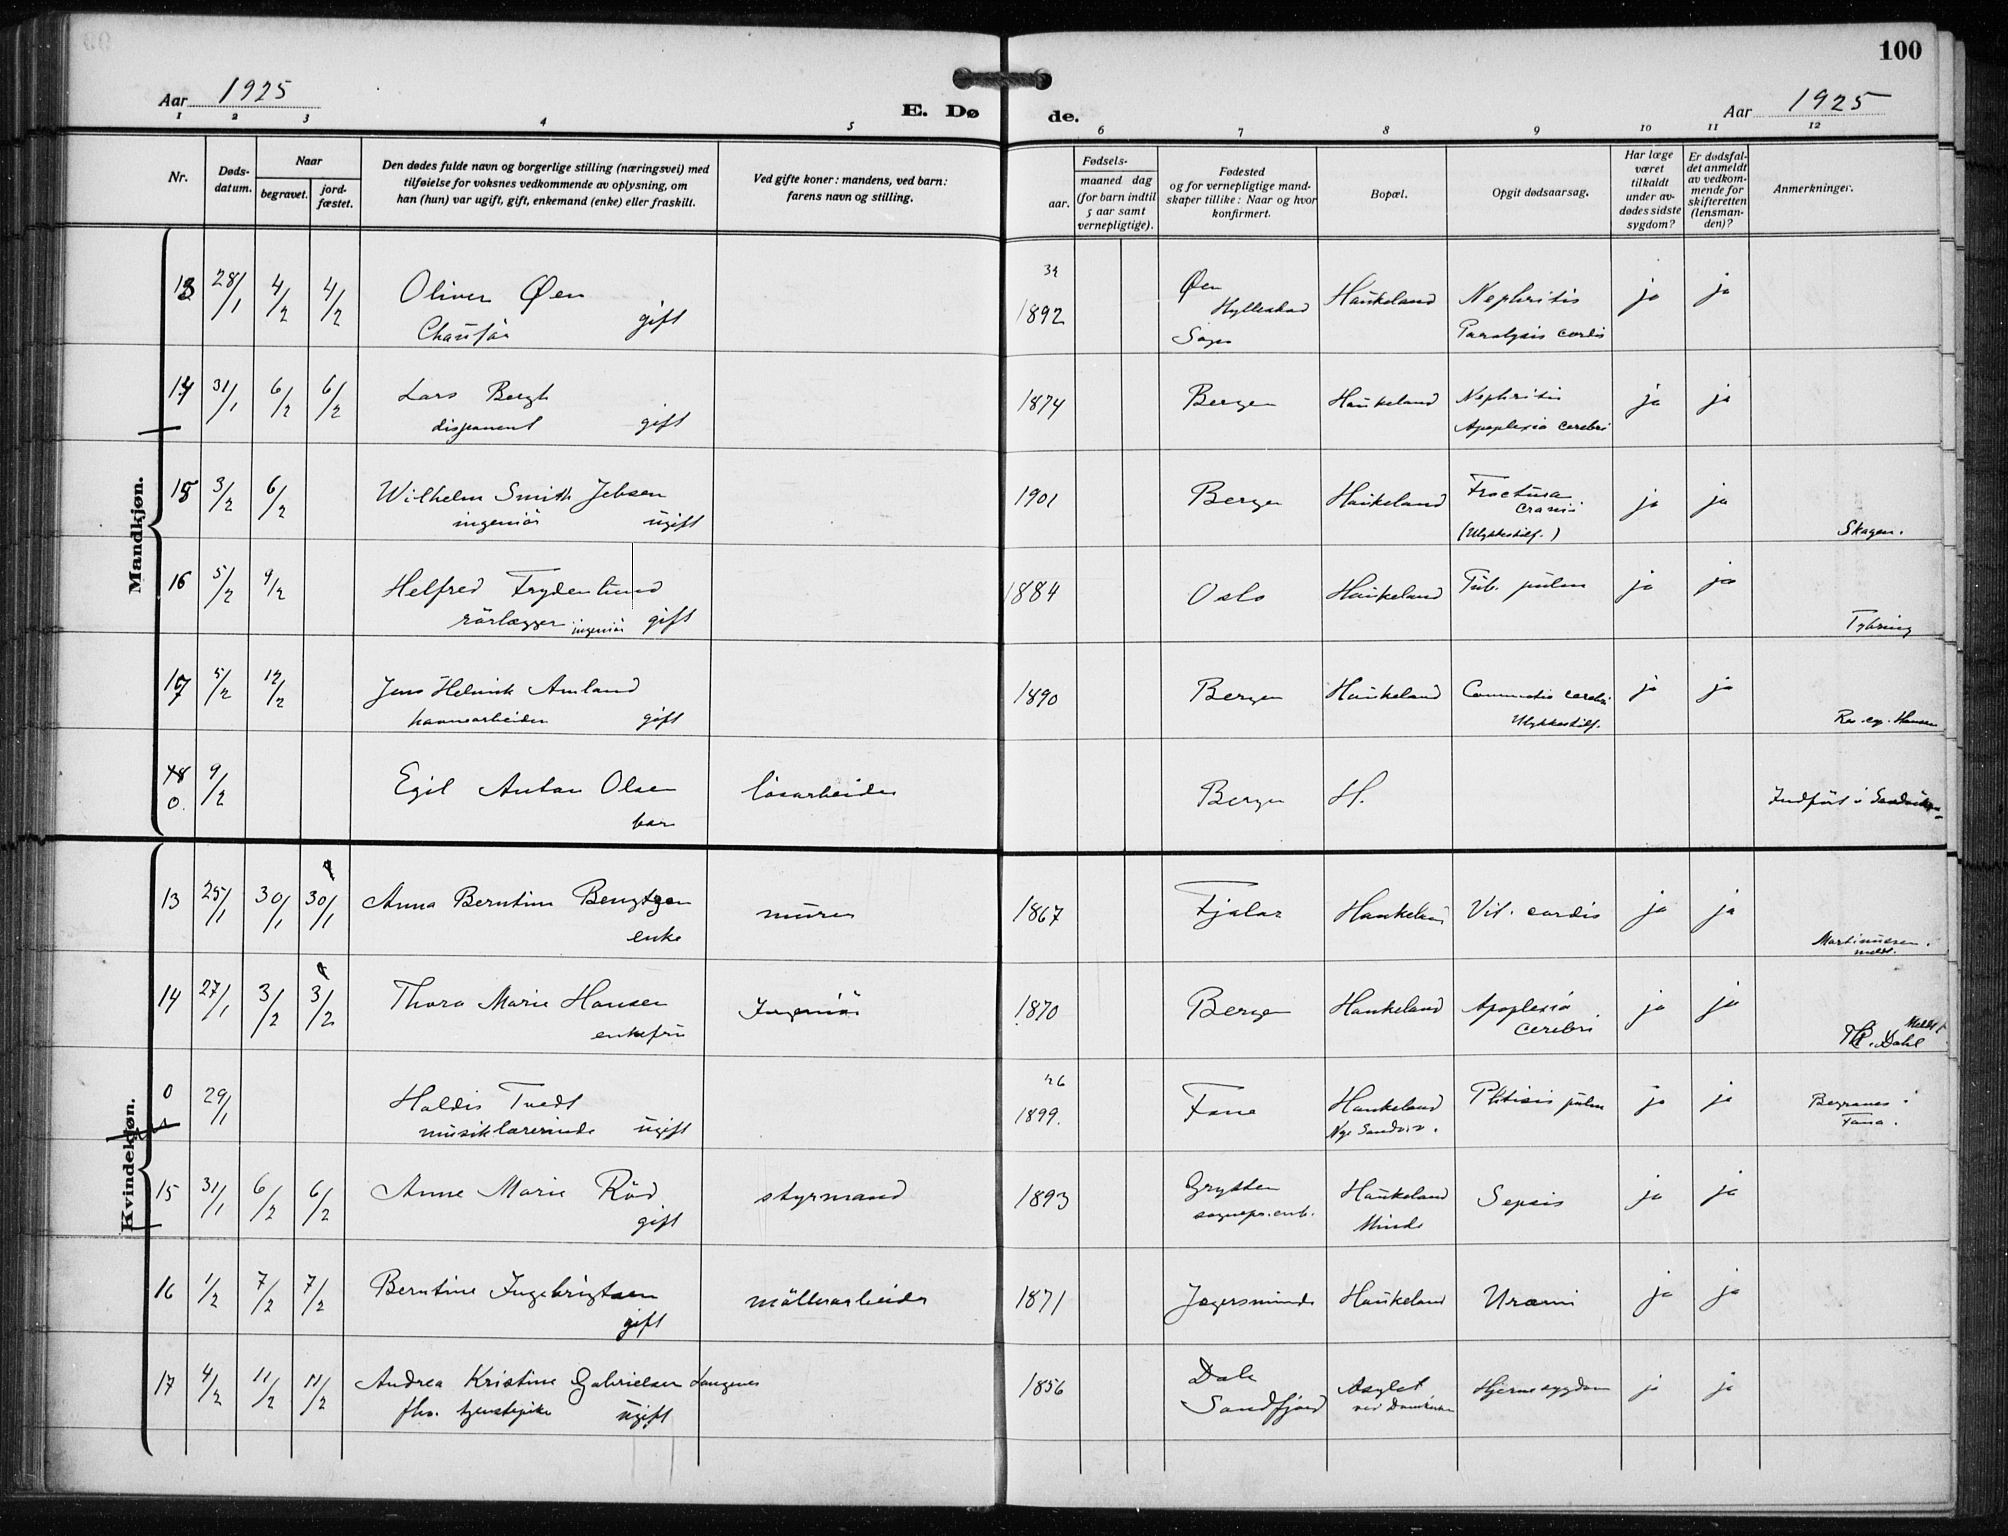 100
Aar 1925
E. Dø
de.
Aar 1925
1 2 3 4 5 6 7 8 9 10 11 12
Nr.
Døds-
datum.
Naar
begravet.
jord-
fæstet.
Den dødes fulde navn og borgerlige stilling (næringsvei) med
tilføielse for voksnes vedkommende av oplysning, om
han (hun) var ugift, gift, enkemand (enke) eller fraskilt.
Ved gifte koner: mandens, ved barn:
farens navn og stilling.
Fødsels-
aar.
maaned dag
(for barn indtil
5 aar samt
vernepligtige).
Fødested
og for vernepligtige mand-
skaper tillike: Naar og hvor
konfirmert.
Bopæl.
Opgit dødsaarsag.
Har læge
været
tilkaldt
under av-
dødes sidste
sygdom?
Er dødsfal-
det anmeldt
av vedkom-
mende for
skifteretten
(lensman-
den)?
Anmerkninger.
Mandkjøn.
13 28/1 4/2 4/2 Oliver Øen 1892 Øen Haukeland Nephritis ja ja
Chauför gift Hyllestad Paralysis cordis
14 31/1 6/2 6/2 Lars Bergh 1874 Bergen Haukeland Nephritis ja ja
disponent gift Apoplexia cerebri
15 3/2 6/2 Wilhelm Smith Jebsen 1901 Bergen Haukeland Fractura ja ja
ingeniör ugift cranii
(Ulykkestilf.) Skagen.
16 5/2 9/2 Helfred Frydenlund 1884 Oslo Haukeland Tub. pulm ja ja
rörlægger ingeniör gift Tybring
17 5/2 12/2 Jens Helmik Amland 1890 Bergen Haukeland Commotio cerebri ja ja
havnearbeider gift Ulykkestilf. Hansen
18 9/2 Egil Anton Olsen lösarbeider Bergen H.
0. barn Indfört i Sandviken
Kvindekjøn.
13 25/1 30/1 30/1 Anna Berntine Bengtsen murer 1867 Fjaler Haukeland Vit. cordis ja ja
enke Martinussen.
meldt.
14 27/1 3/2 3/2 Thora Marie Hansen Ingeniör 1870 Bergen Haukeland Apoplexia ja ja
enkefru cerebri Meldt
Dahl
0 29/1 Haldis Tvedt 1899. Fane Haukeland Phtisis pulm ja ja Begraves i
musiklærerinde ugift Nye Sandv. v. Fana.
15 31/1 6/2 6/2 Anne Marie Röd styrmand 1893 Grytten Haukeland Sepsis ja ja
gift Minde
16 1/2 7/2 7/2 Berntine Ingebrigtsen möllerarbeider 1871 Jægersminde Haukeland Uræmi ja ja
gift
17 4/2 11/2 11/2 Andrea Kristine Gabrielsen Langenes 1856 Dale Asylet Hjernesygdom ja ja
fhv. tjenstepike ugift Sandfjord ved Domkirken